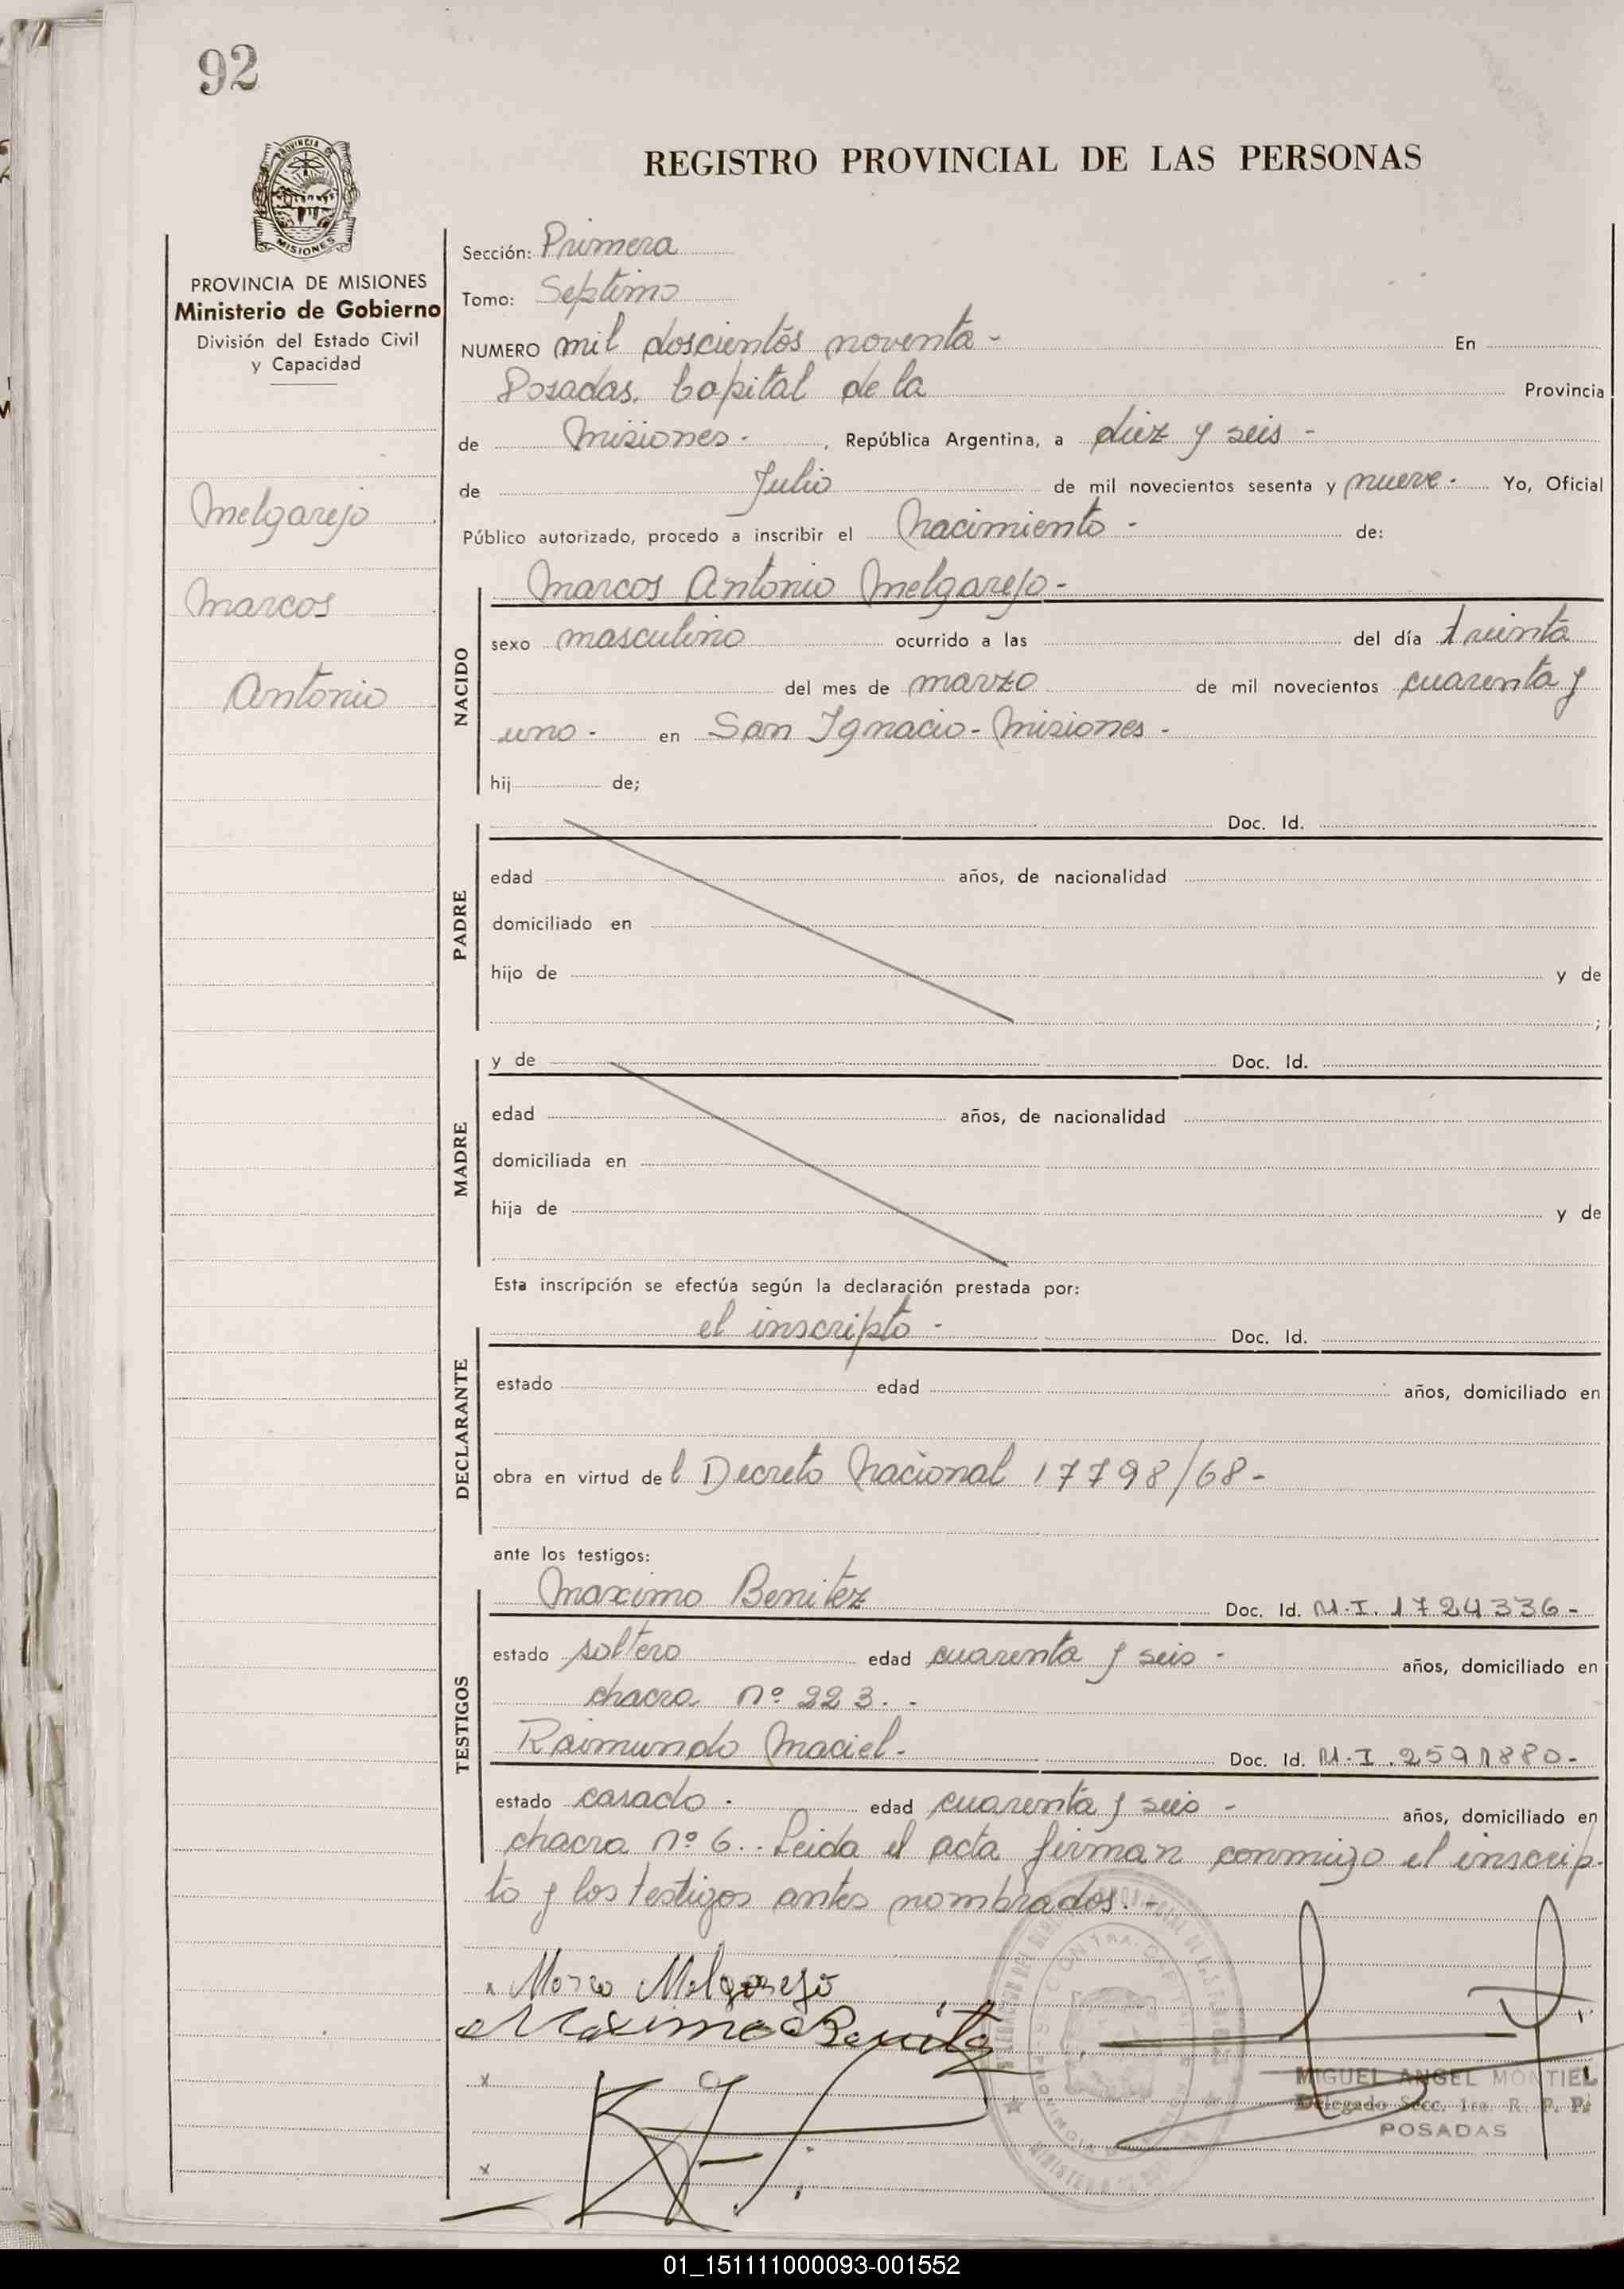 92
REGISTRO PROVINCIAL DE LAS PERSONAS
PROVINCIA DE MISIONES
PROVINCIA DE MISIONES
Ministerio de Gobierno
División del Estado Civil
y Capacidad
Melgarejo
Marcos
Antonio
Sección: Primera
Tomo: Septimo
NUMERO mil doscientos noventa - En
Posadas, Capital de la Provincia
de Misiones - , República Argentina, a diez y seis -
de Julio de mil novecientos sesenta y nueve - Yo, Oficial
Público autorizado, procedo a inscribir el Nacimiento - de:
NACIDO
Marcos Antonio Melgarejo -
sexo masculino ocurrido a las del día treinta
del mes de marzo de mil novecientos cuarenta y
uno - en San Ignacio - Misiones -
hij de;
PADRE
Doc. Id.
edad años, de nacionalidad
domiciliado en
hijo de y de
;
MADRE
y de Doc. Id.
edad años, de nacionalidad
domiciliada en
hija de y de
Esta inscripción se efectúa según la declaración prestada por:
DECLARANTE
el inscripto - Doc. Id.
estado edad años, domiciliado en
obra en virtud del Decreto Nacional 17798/68 -
ante los testigos:
TESTIGOS
Maximo Benitez Doc. Id. M.I. 1724336 -
estado soltero edad cuarenta y seis - años, domiciliado en
chacra nº 223. -
Raimundo Maciel - Doc. Id. M.I. 2591880 -
estado casado - edad cuarenta y seis - años, domiciliado en
chacra nº 6.. Leida el acta firman conmigo el inscrip-
to y los testigos antes nombrados. -
x Marco Melgarejo
Maximo Benitez
x
x
MIGUEL ANGEL MONTIEL
Delegado Secc. 1ra. R. P. P.
POSADAS
01_151111000093-001552